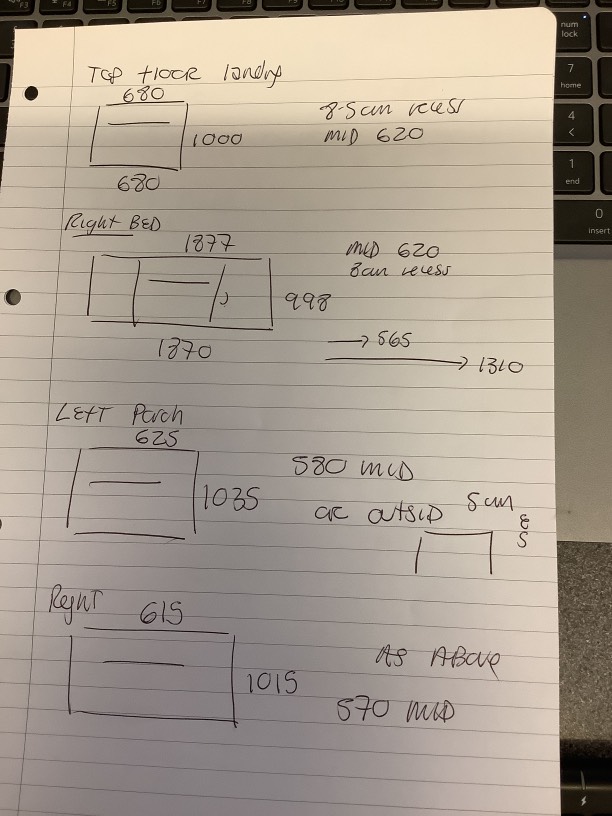 TOP FLOOR landing
680
8.5cm recess
1000
MID 620
680
Right BED
1877
MID 620
8cm recess
998
565
1370
1310
LEFT Porch
625
580 MID
1035
5cm
OUTSID
Right
615
AS ABOVE
1015
570 MID
num
lock
7
home
4
<
1
end
0
insert